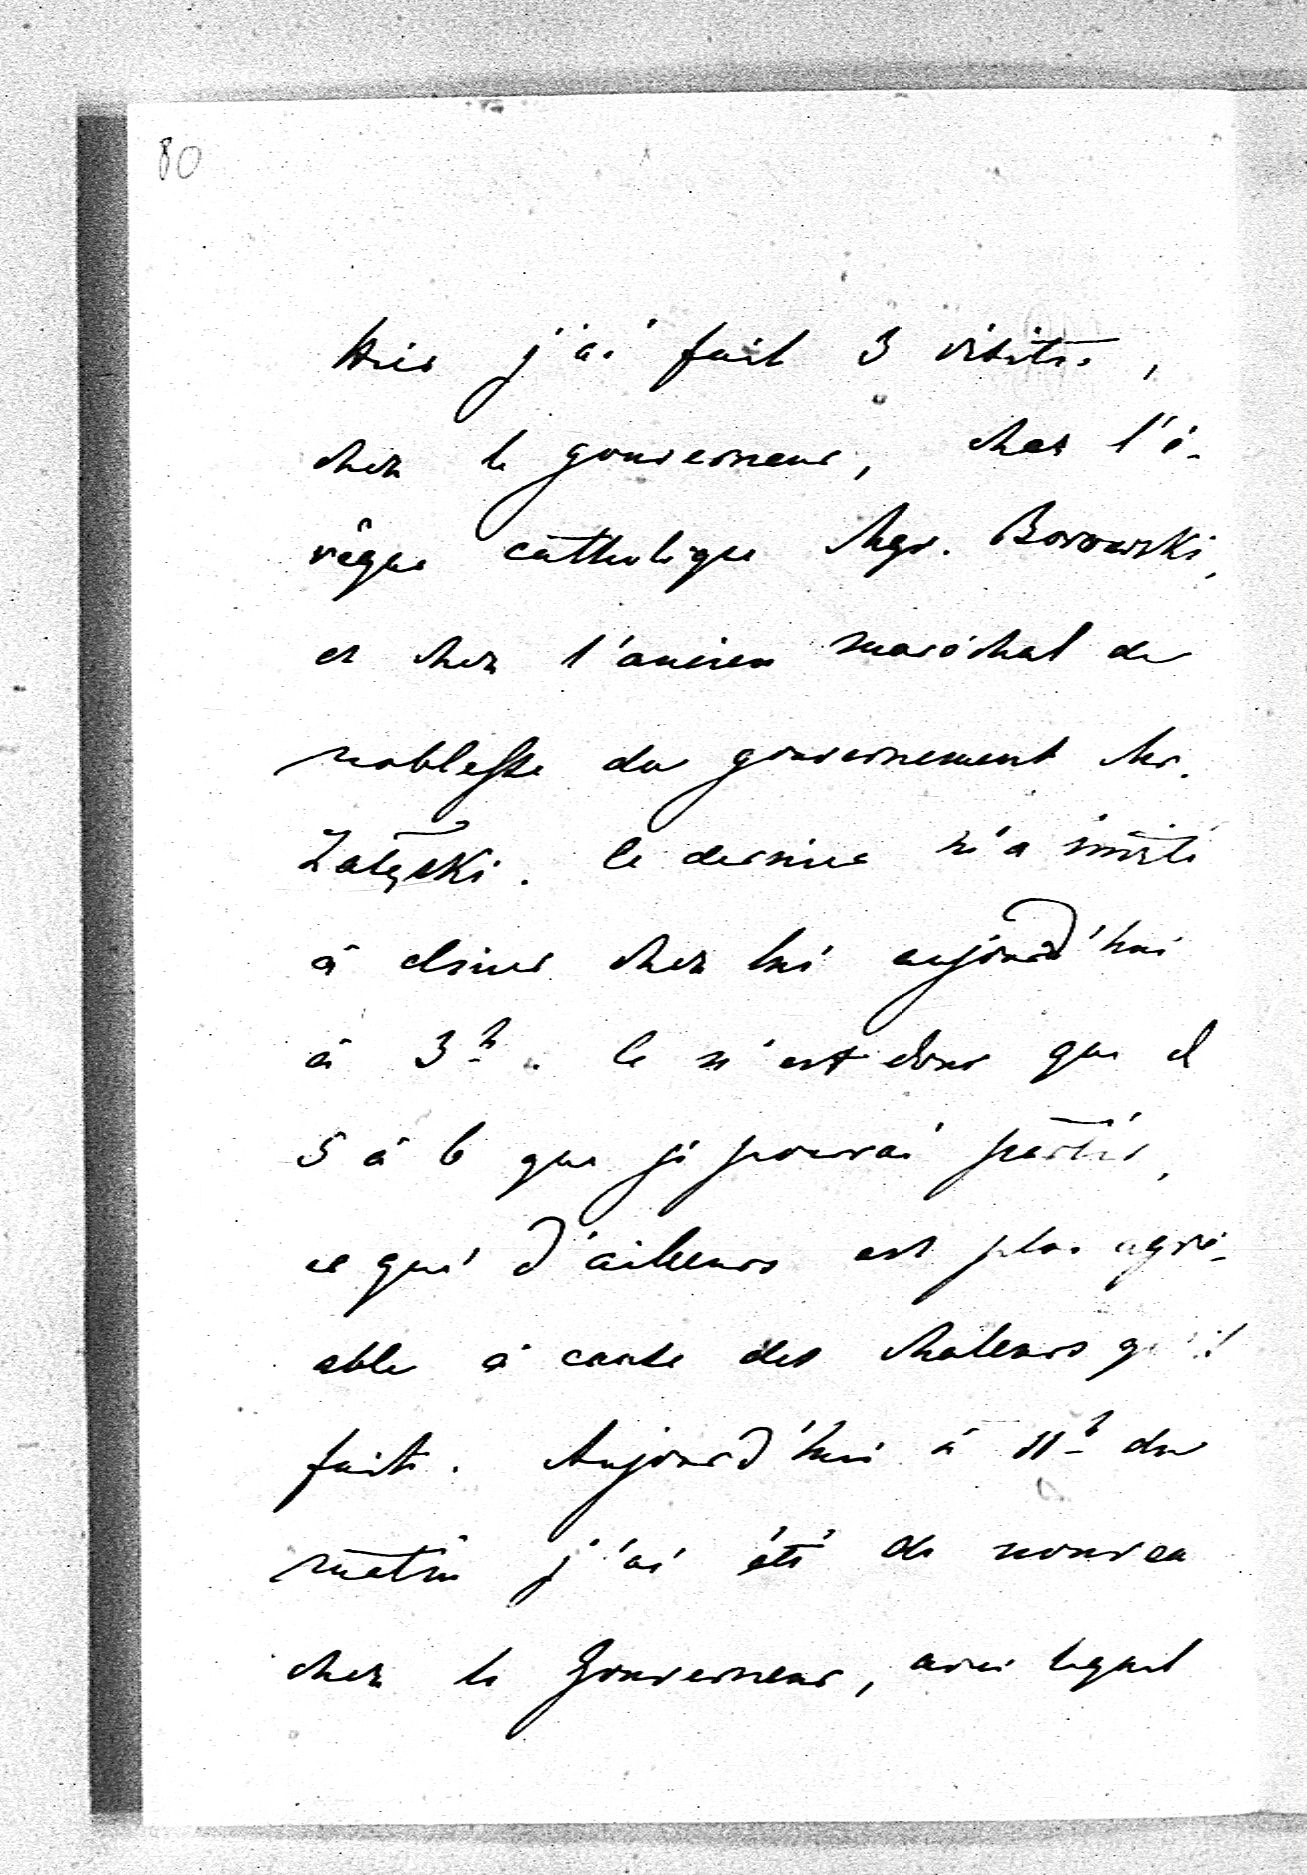 80
Hier j'ai fait 3 visites,
chez le gouverneur, chez l'é-
vêque catholique Mgr. Borowski,
et chez l'ancien maréchal de
noblesse du gouvernement Mr.
Załęski. Ce dernier m'a invité
à diner chez lui aujourd'hui
à 3h. Ce n'est donc que d
5 à 6 que je pourrai partir,
ce qui d'ailleurs est plus agré-
able à cause des chaleurs qu'il
faite. Aujourd'hui à 11h du
matin j'ai été de nouveau
chez le Gouverneur, avec lequel